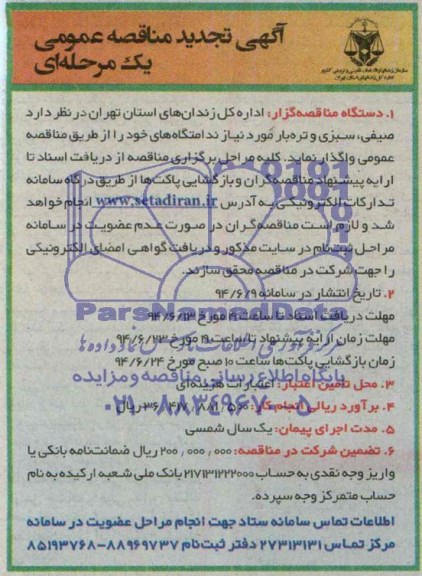 آگهی تجدید مناقصه عمومی
یک مرحله‌ای
۱. دستگاه مناقصه‌گزار: اداره کل زندان‌های استان تهران در نظر دارد
صیفی، سبزی و تره‌بار مورد نیاز ندامتگاه‌های خود را از طریق مناقصه
عمومی واگذار نماید. کلیه مراحل برگزاری مناقصه از دریافت اسناد تا
ارایه پیشنهاد مناقصه‌گران و بازگشایی پاکت‌ها از طریق درگاه سامانه
تدارکات الکترونیکی به آدرس www.setadiran.ir انجام خواهد
شد و لازم است مناقصه‌گران در صورت عدم عضویت در سامانه
مراحل ثبت‌نام در سایت مذکور و دریافت گواهی امضای الکترونیکی
را جهت شرکت در مناقصه محقق سازند.
۲. تاریخ انتشار در سامانه ۹۴/۶/۹
مهلت دریافت اسناد تا ساعت ۱۹ مورخ ۹۴/۶/۱۳
ParsNamadData
مهلت زمان ارایه پیشنهاد تا ساعت ۱۹ مورخ ۹۴/۶/۲۳
زمان بازگشایی پاکت‌ها ساعت ۱۰ صبح مورخ ۹۴/۶/۲۴
پایگاه اطلاع رسانی مناقصه و مزایده
۳. محل تامین اعتبار: اعتبارات هزینه‌ای
۴. برآورد ریالی انجام کار: ریال
۰۲۱-۸۸۳۴۹۶۷۰-۵
۵. مدت اجرای پیمان: یک سال شمسی
۶. تضمین شرکت در مناقصه: ۲۰۰,۰۰۰,۰۰۰ ریال ضمانت‌نامه بانکی یا
واریز وجه نقدی به حساب ۲۱۷۱۳۱۲۲۲۰۰۰ بانک ملی شعبه ارکیده به نام
حساب متمرکز وجه سپرده.
اطلاعات تماس سامانه ستاد جهت انجام مراحل عضویت در سامانه
مرکز تماس ۲۷۳۱۳۱۳۱ دفتر ثبت‌نام ۸۸۹۶۹۷۳۷-۸۵۱۹۳۷۶۸